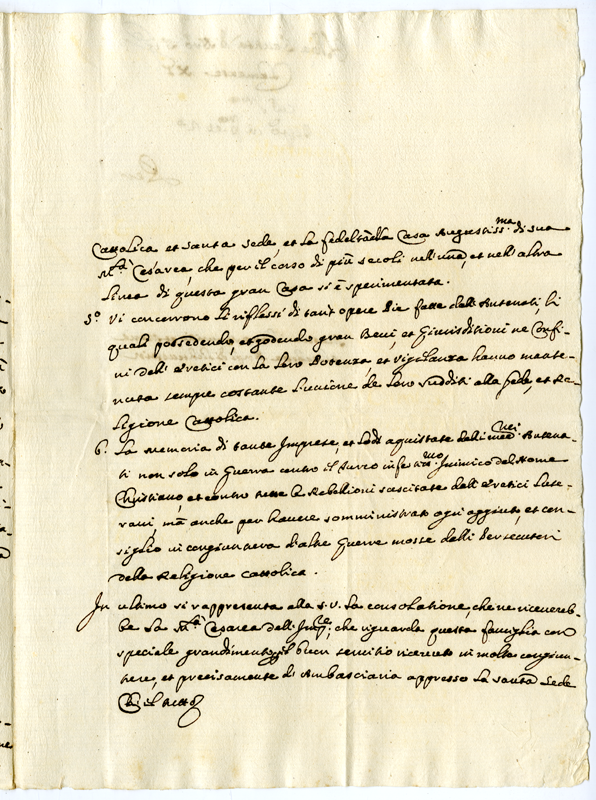 Cattolica et Santa Sede, et la fedeltà della Casa Augustiss.ma di sua
M.tà Cesarea, che per il corso di più secoli nell'una, et nell'altra
Linea di questa gran Casa si è sperimentata.
5.o Vi concorrono li riflessi di tant'opere Pie fatte dalli Antenati, li
quali possedendo, et godendo gran Beni, et Giurisditioni ne Confi-
ni dell'eretici con la loro Potenza, et vigilanza hanno mante-
nuta sempre costante l'unione de loro sudditi alla fede, et Re-
ligione Cattolica.
6. La memoria di tante Imprese, et Lodi aquistate dalli med.mi Antena-
ti non solo in Guerra contro il Turco infestiss.mo Inimico del Nome
Christiano, et contro tutte le Rebellioni suscitate dall'eretici Lute-
rani, mà anche per havere somministrato ogni aggiuto, et con-
siglio in congiuntura d'altre Guerre mosse dalli Persecutori
della Religione Cattolica.
In ultimo si rappresenta alla S.V. la consolatione, che ne ricevereb-
be la M.tà Cesarea dell'Imp.re, che riguarda questa famiglia con
speciale gradimento il buon servitio ricevuto in molte congiun-
ture, et precisamente di Ambasciaria appresso la Santa Sede
Che il tutto